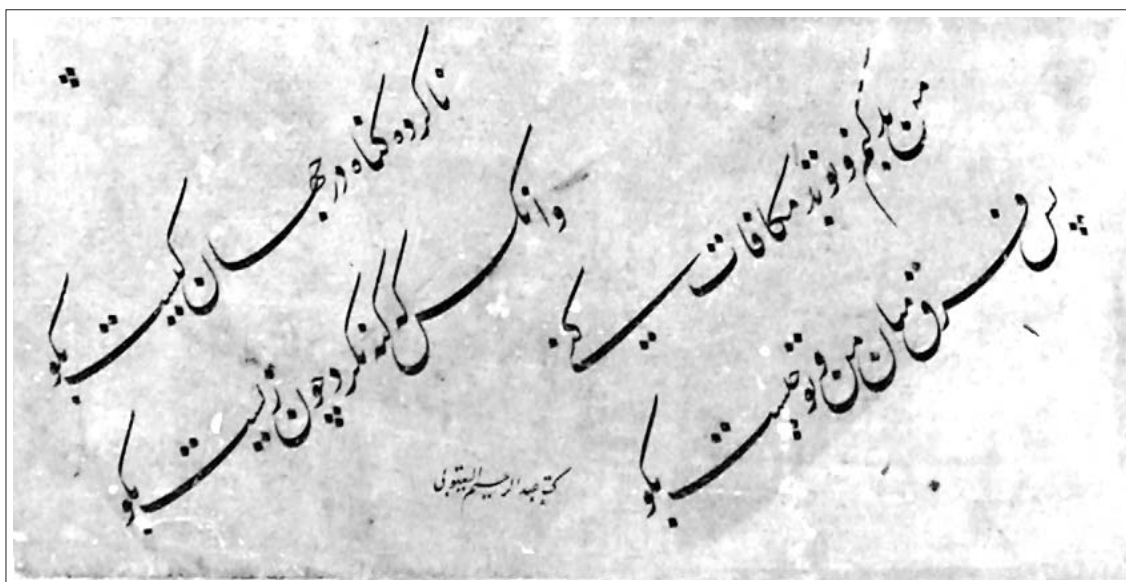 ناکرده گناه در جهان کیست بگو
وانکس که گنه نکرد چون زیست بگو
من بد کنم و تو بد مکافات کنی
پس فرق میان من و تو چیست بگو
کتبه عبدالرحیم الیعقوبی